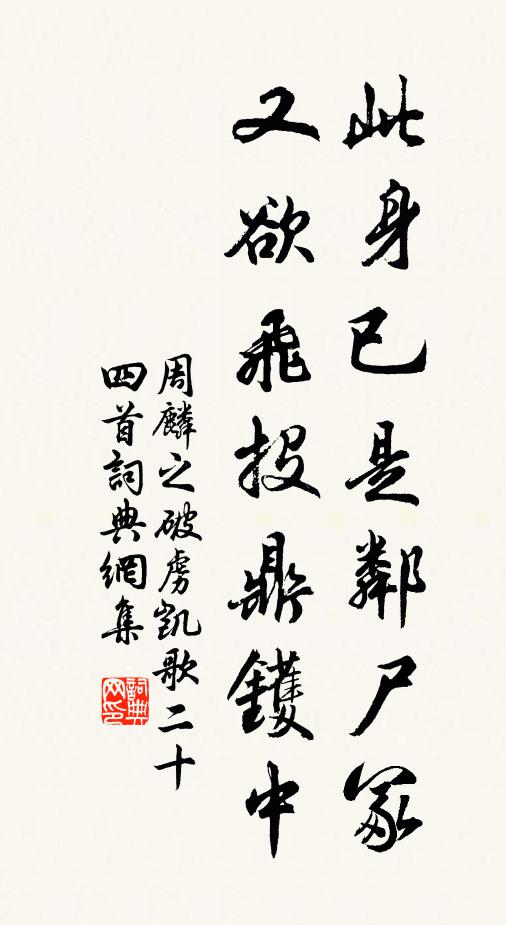 此身已是鄰尸冢
又欲飛投鼎鑊中
周麟之破虜凱歌二十
四首詞典網集
詞典
网印